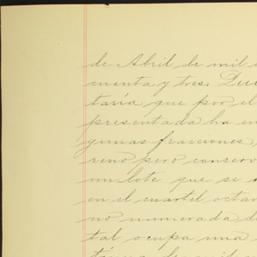 de Abril de mil
cuenta y tres. Decl
taría que por el
presentada ha en
gunas fracciones,
reno pero conserv
un lote que se
en el cuartel octav
no numerada d
tal ocupa una